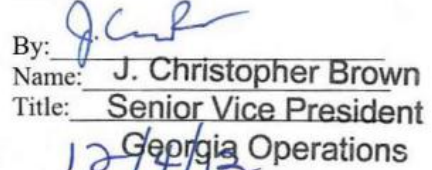 By:
Name: J. Christopher Brown
Title: Senior Vice President
Georgia Operations